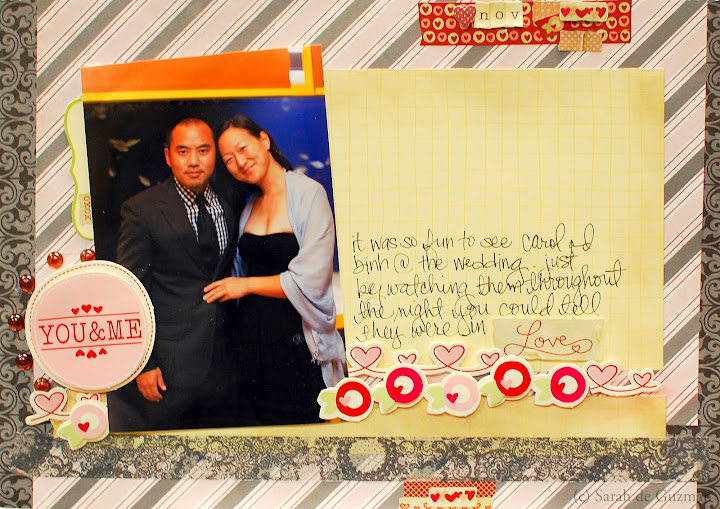 nov
xoxo
it was so fun to see carol and
binh @ the wedding. just
by watching them throughout
the night you could tell
they were in
Love
YOU & ME
(c) Sarah de Guzman